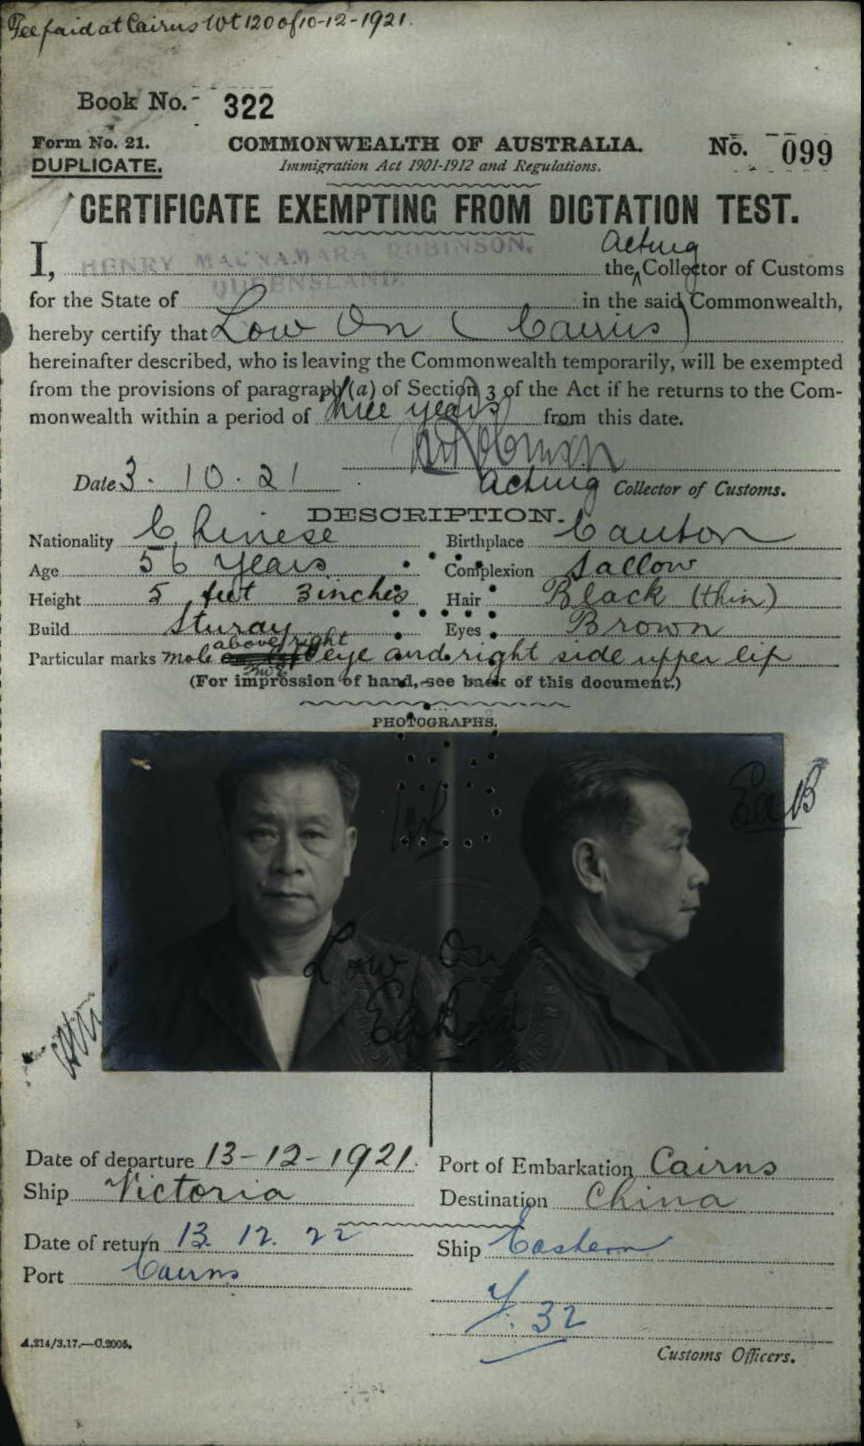 Fee paid at Cairns Wt 120 of 10-12-1921.
Book No. - 322
Form No. 21. COMMONWEALTH OF AUSTRALIA. No. 099
DUPLICATE. Immigration Act 1901-1912 and Regulations.
CERTIFICATE EXEMPTING FROM DICTATION TEST.
I, HENRY MACNAMARA ROBINSON, the Acting Collector of Customs
for the State of QUEENSLAND in the said Commonwealth,
hereby certify that Low On (Cairns)
hereinafter described, who is leaving the Commonwealth temporarily, will be exempted
from the provisions of paragraph (a) of Section 3 of the Act if he returns to the Com-
monwealth within a period of three years from this date.
Date 3. 10. 21 Acting Collector of Customs.
DESCRIPTION.
Nationality Chinese Birthplace Canton
Age 56 years Complexion Sallow
Height 5 feet 3 inches Hair Black (thin)
Build Sturdy Eyes Brown
Particular marks mole above right eye and right side upper lip
(For impression of hand, see back of this document.)
PHOTOGRAPHS.
Low On
Date of departure 13-12-1921. Port of Embarkation Cairns
Ship Victoria Destination China
Date of return 13. 12. 22 Ship Eastern
Port Cairns
32
A.214/3.17.—C.2005. Customs Officers.